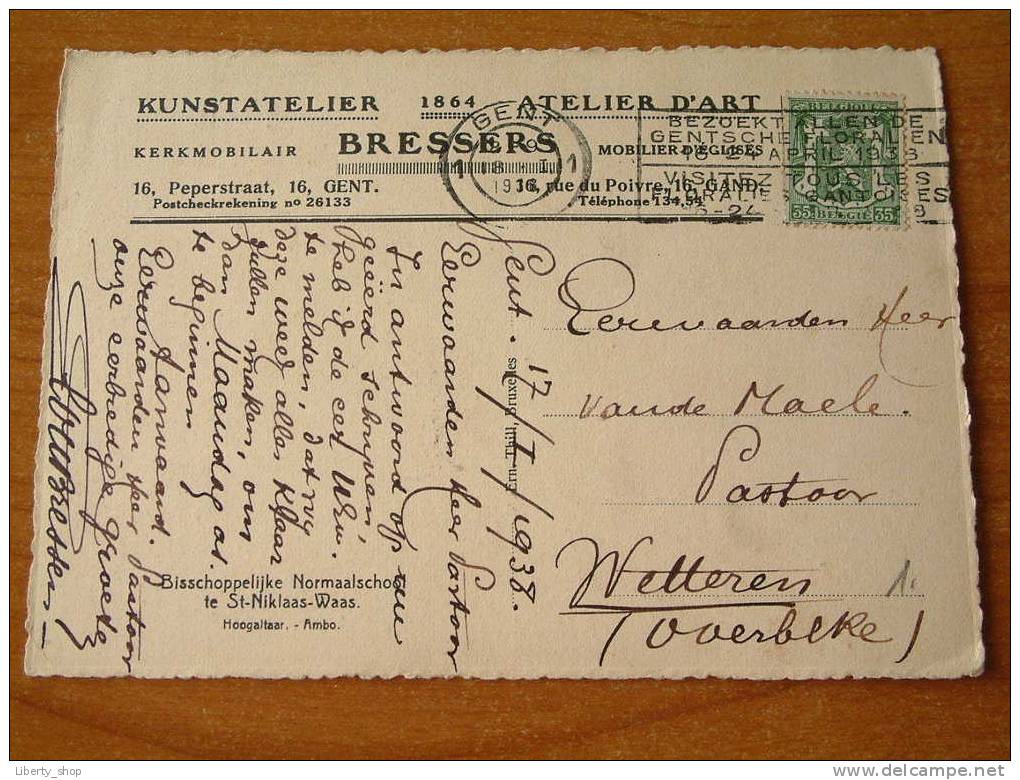 KUNSTATELIER 1864 ATELIER D'ART
BRESSERS
KERKMOBILAIR MOBILIER D'ÉGLISES
16, Peperstraat, 16, GENT. 16, rue du Poivre, 16, GAND.
Postcheckrekening no 26133 Téléphone 134,54
GENT
1938
BEZOEKT ALLEN DE
GENTSCHE FLORALIEN
16-24 APRIL 1938
VISITEZ TOUS LES
FLORALIES GANTOISES
BELGIQUE
35 BELGIË 35
Gent. 17/I/1938.
Eerwaarden Heer Pastoor
In antwoord op uw
geëerd schrijven
heb ik de eer U
te melden, dat wij
deze week alles klaar
zullen maken, om
Maandag as.
te beginnen
Aanvaard.
Eerwaarden Heer Pastoor
onze eerbiedige groeten
Bressers
Ern. Thill, Bruxelles
Eerewaarden Heer
Vande Maele.
Pastoor
Wetteren
(Overbeke)
1.
Bisschoppelijke Normaalschool
te St-Niklaas-Waas.
Hoogaltaar. - Ambo.
Liberty_shop
delcampe.net